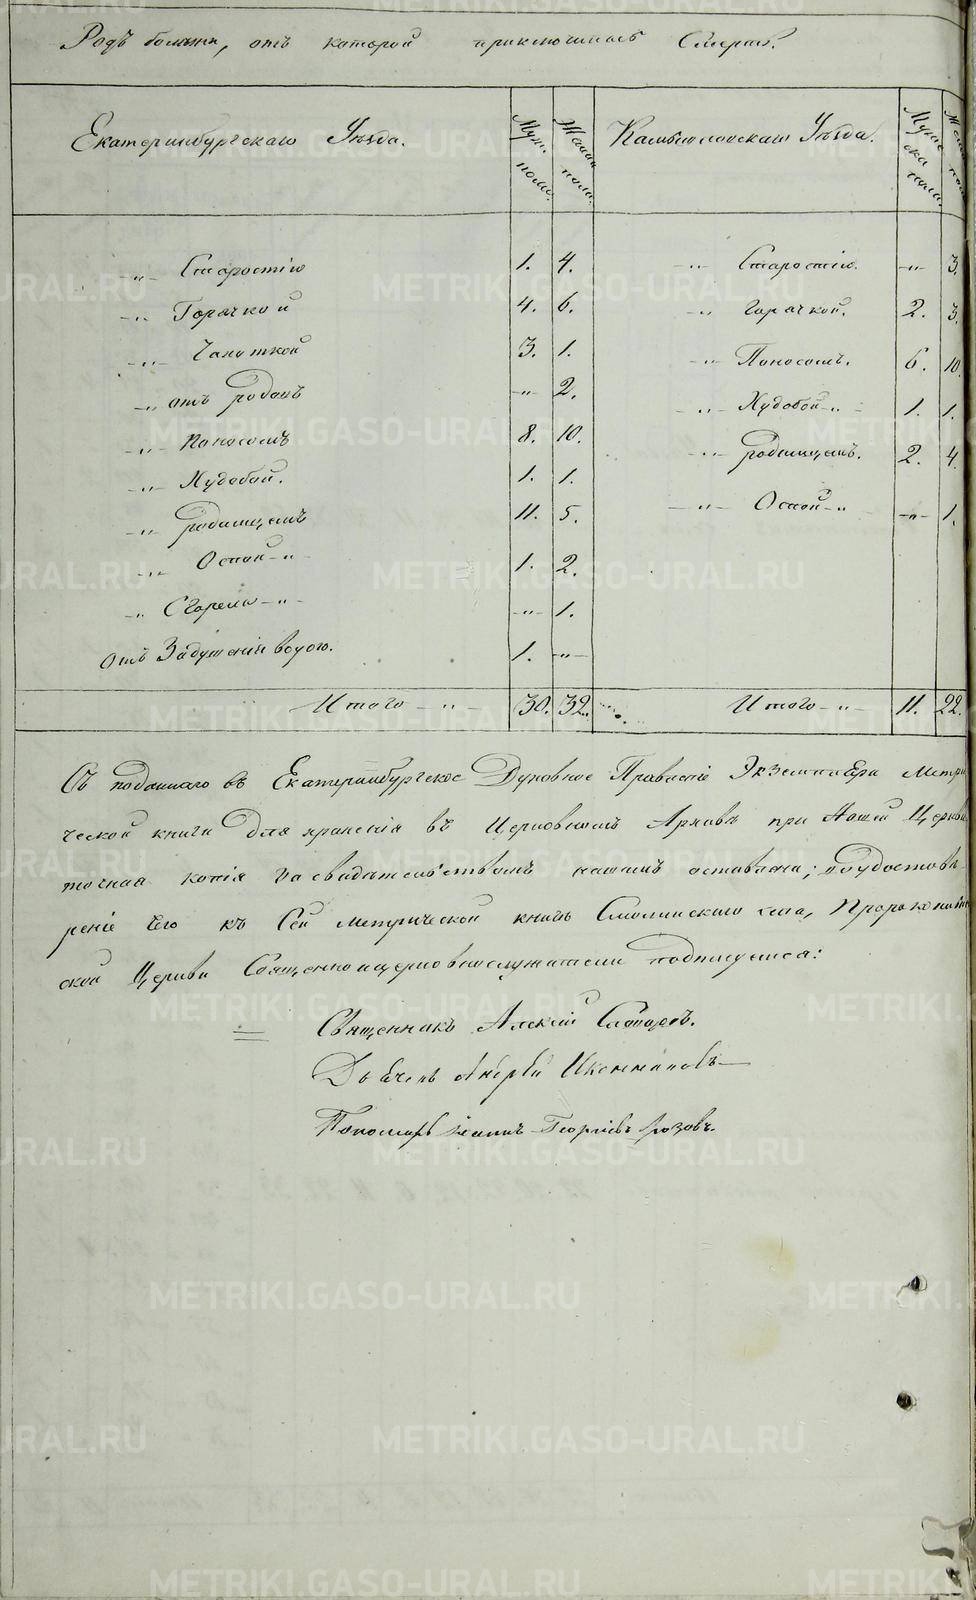 Родъ болѣзни, отъ которой приключилась Смерть.
Екатеринбургскаго Уѣзда. Муж. пола. Женск. пола. Камышловскаго Уѣзда. Мужеска пола. Женс. пол.
-„- Старостію 1. 4. -„- Старостію. -„- 3.
-„- Горячкой 4. 6. -„- Горячкой. 2. 3.
-„- Чахоткой 3. 1. -„- Поносомъ. 6. 10.
-„- отъ родовъ -„- 2. -„- Худобой -„- 1. 1.
-„- Поносомъ 8. 10. -„- родимцемъ. 2. 4.
-„- Худобой. 1. 1. -„- Оспой -„- -„- 1.
-„- родимцемъ 11. 5.
-„- Оспой -„- 1. 2.
-„- Сгорело -„- -„- 1.
Отъ Задушенія водою. 1. -„-
Итого -„- 30. 32. Итого -„- 11. 22.
Съ поданнаго въ Екатеринбургское Духовное Правленіе Экземпляра Метри
ческой книги для храненія въ Церковномъ Архивѣ при Нашей Церкви
точная копія за свидѣтельствомъ нашимъ оставлена; въ удостовѣ-
реніе чего къ Сей метрической книгѣ Смолинскаго села, Пророкоильин
ской Церкви Священноицерковнослужители подписуемся:
Священникъ Алексій
Дьячекъ Андрей Иконниковъ
Пономарь Георгіевъ
METRIKI.GASO-URAL.RU